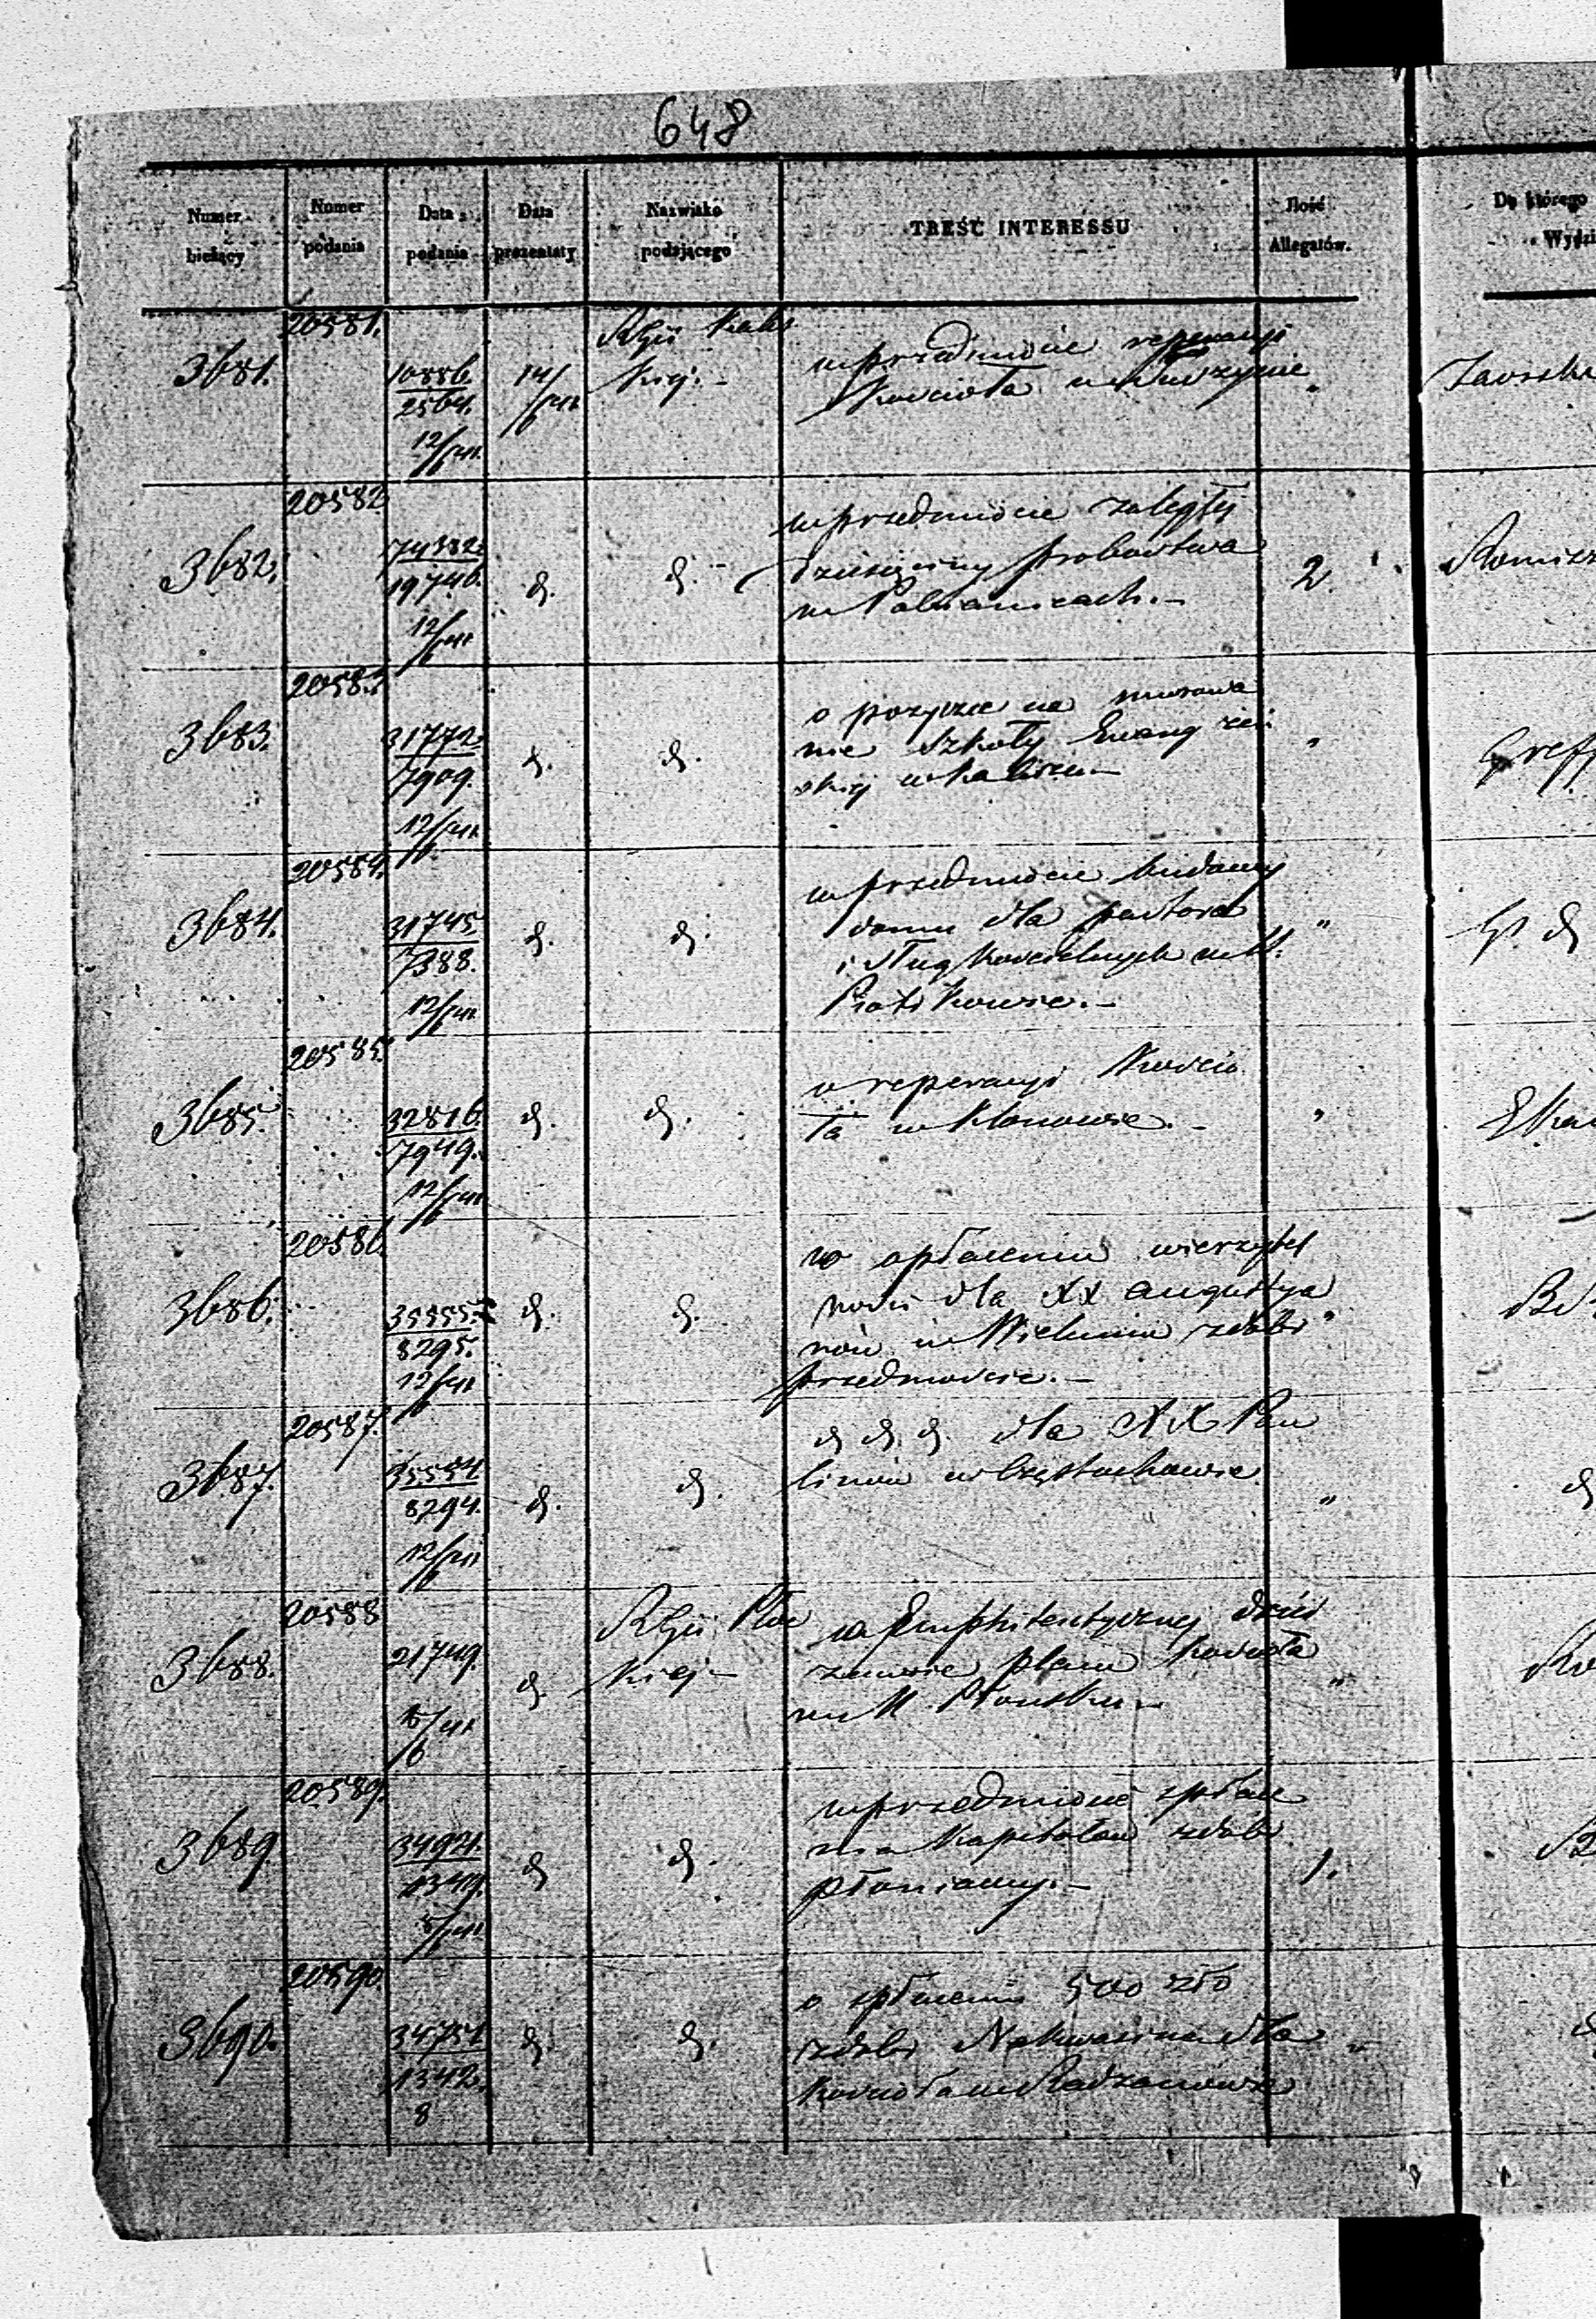 648
Numer bieżący
Numer podania
Data podania
Data prezentaty
Nazwisko podającego
TREŚĆ INTERESSU
Ilość Allegatów.
Do którego
Wydzi
3681.
20581.
10886.
2564.
12/6 41
14/6 41
Rząd Kalis
kiej.-
w przedmiocie reperacyi
Kościoła w
"
3682.
20582
74382.
19746.
12/6 41
d.
d.-
w przedmiocie zaległej
dziesięciny probostwa
w Pabianicach.-
2.
3683.
20583
31772.
7909.
12/6 41
d.
d.
o pozyczce na murowa
nie Szkoły Ewang
skiej w Kaliszu-
"
Greff
3684.
20584.
31745.
7388.
12/6 41
d.
d.
w przedmiocie budowy
domu dla pastora
i sług Kościelnych w M.
Piotrkowie.-
"
d
3685.
20585.
32816.
7949.
12/6 41
d.
d.
o reperacyi Kościo
ła w Klonowie.-
"
3686.
20586.
35555.
8295.
12/6 41
d.
d.
o spłaceniu wierzytel
ności dla XX Augustya
nów w Wieluniu z dóbr
przedmoście.-
"
3687.
20587.
35554.
8294.
12/6 41
d.
d.
d d. d. dla XX Pau
linów w Częstochowie
"
d
3688.
20588
21749.
5/6 41
d.
Rząd Płoc
kiej-
w Emphiteutycznej dzier
zawie placu kościoła
w M. Płońsku-
"
3689.
20589.
34921.
1349.
5/6 41
d
d.
w przedmiocie spłace
nia Kapitałów z dóbr
płoniawy.-
1.
3690.
20590.
34751
1342.
8
d.
d.
o spłaceniu 500 zło
z dóbr Nakwasina dla
kościoła w Radzanowie
"